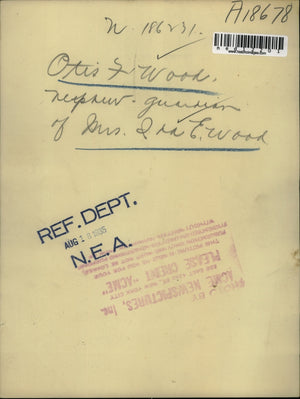 A18678
N. 186231.
Otis F. Wood.
nephew - guardian
of Mrs. Ida E. Wood
REF. DEPT.
AUG 18 1935
N.E.A.
PHOTO BY
ACME NEWSPICTURES, Inc.
NEW YORK CITY
PLEASE CREDIT "ACME"